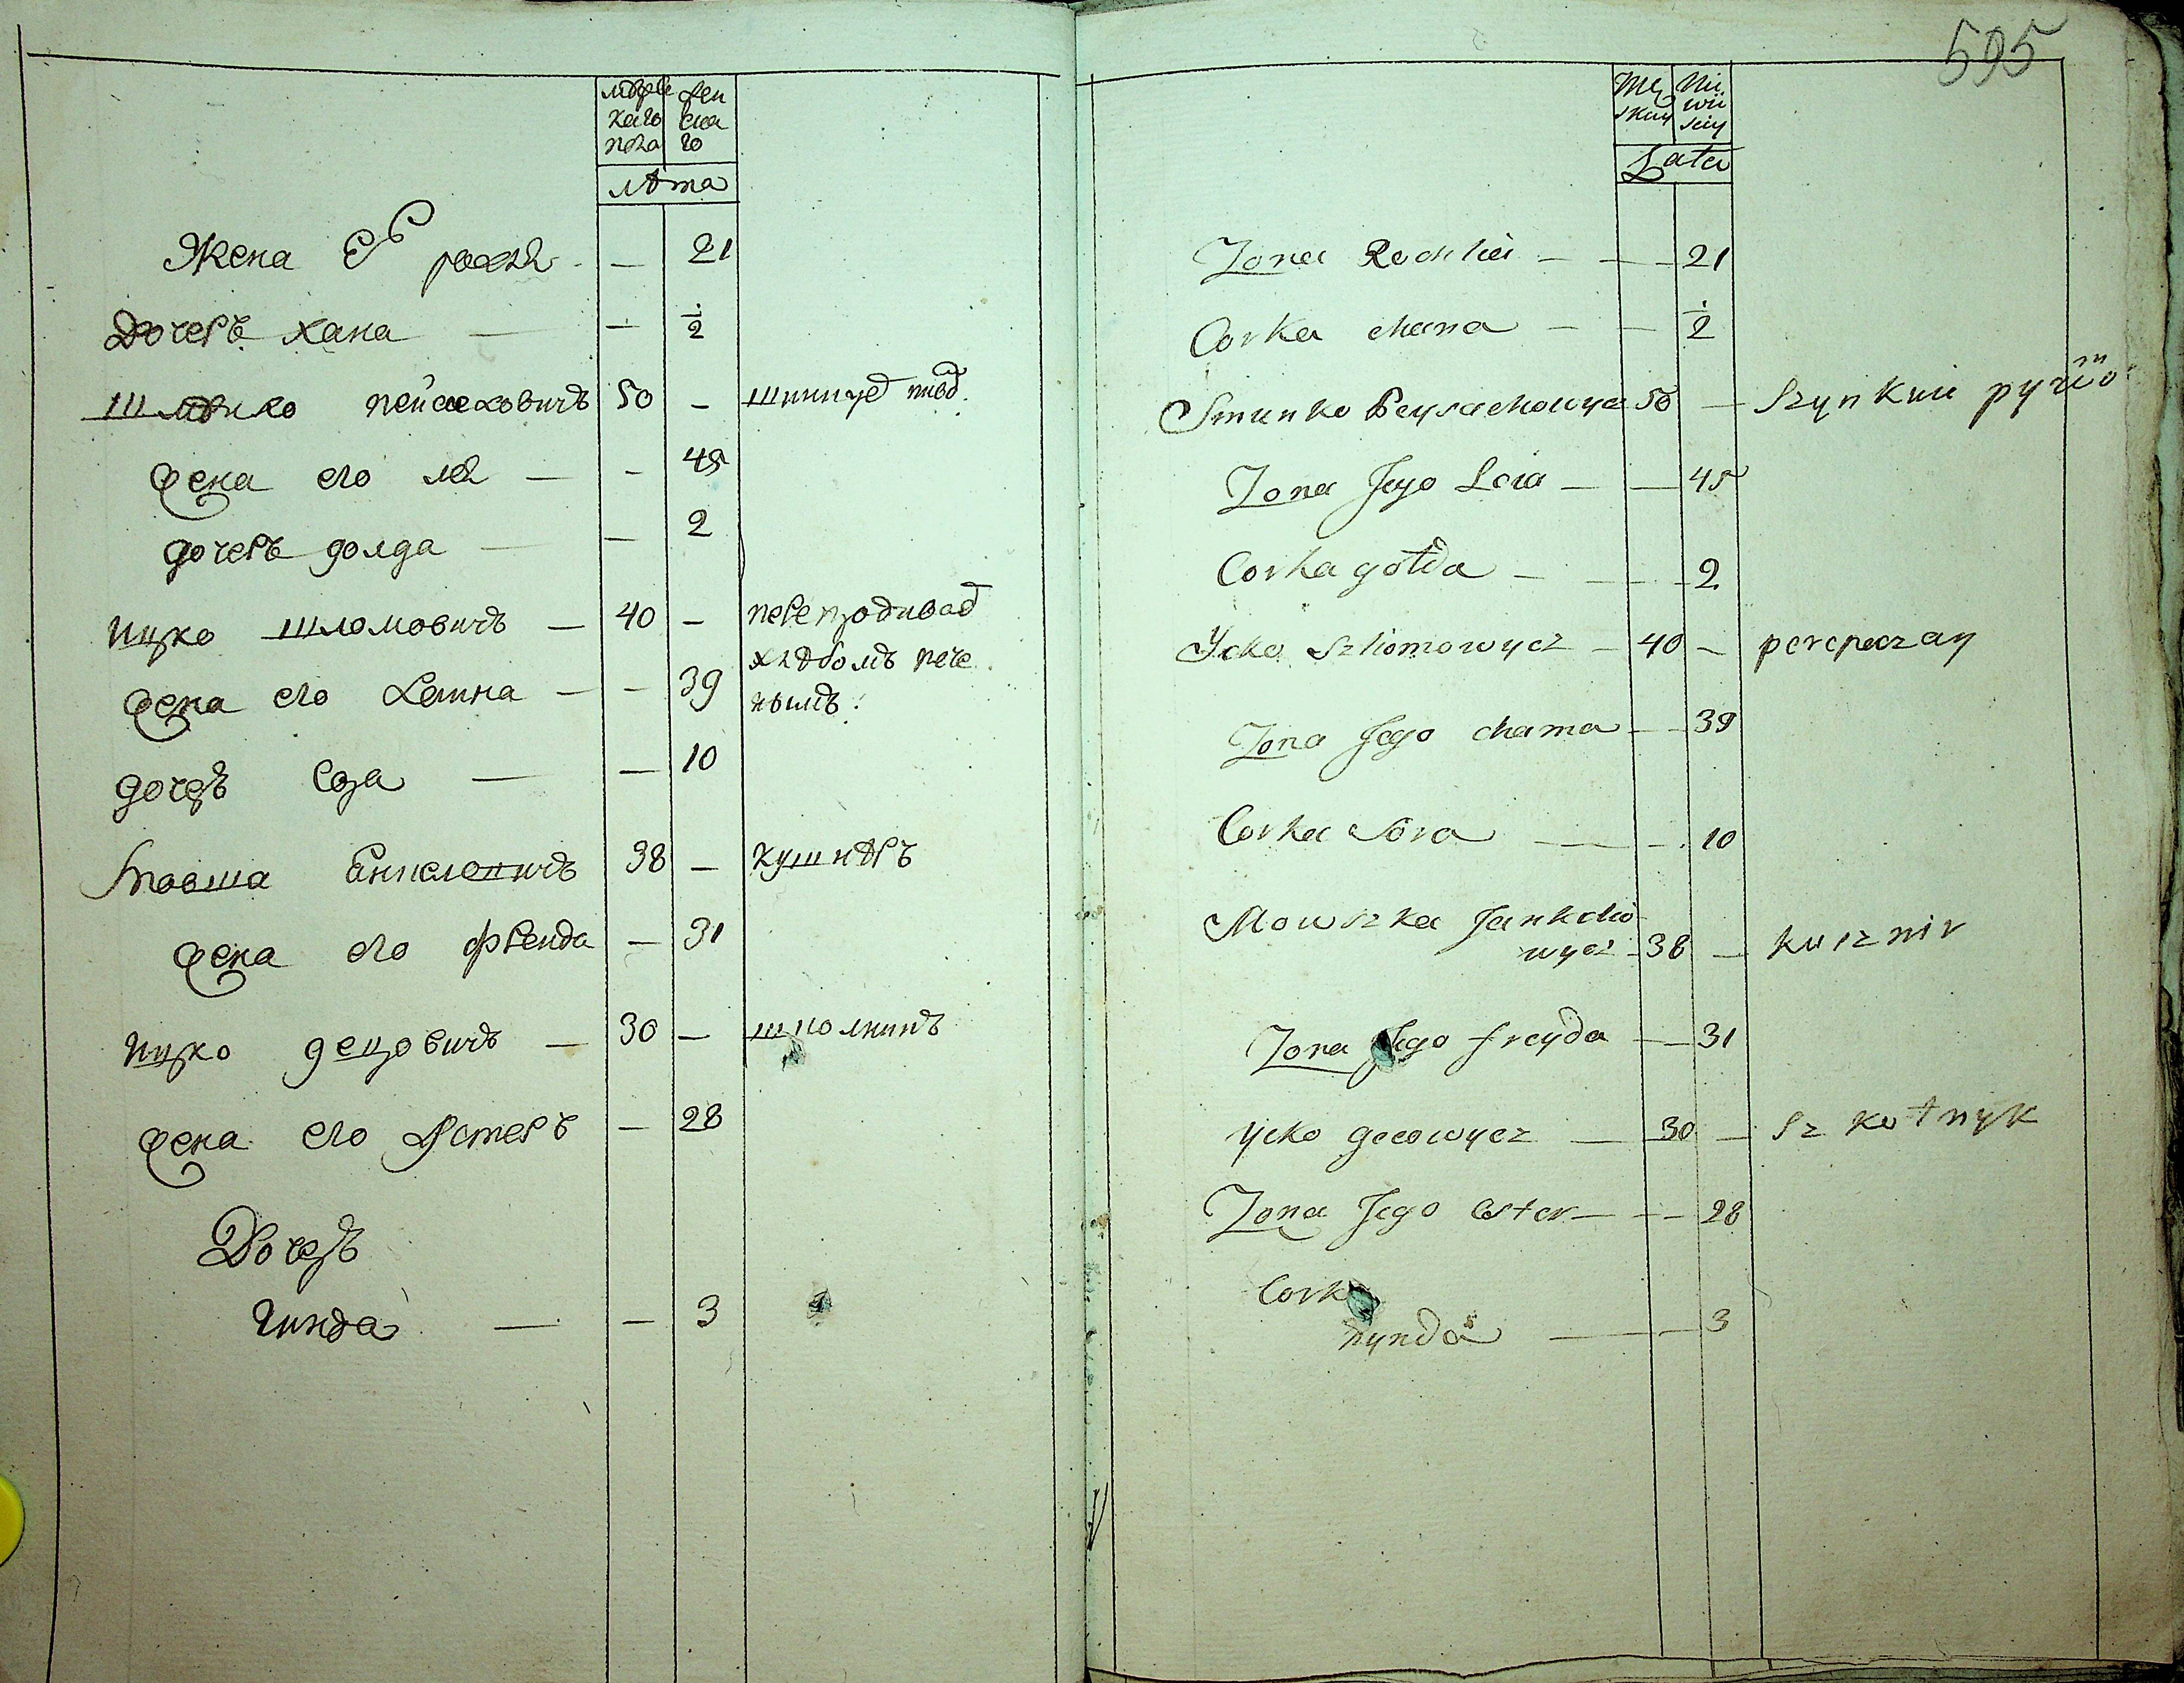 595
мужес
каго
пола
жен
ска
го
лѣта
Жена Его рахля — — 21
Дочерь хана — — ½
Шмунко пейсаховичъ 50 — шинкуе пивом
жена его лея — — 45
дочерь голда — — 2
ицко шломовичъ — 40 — перепродивает
хлѣбомъ пече
нымъ.
жена его хаина — — 39
дочеръ Сора — — 10
Мовша Янкеловичъ 38 — кушнѣръ
жена его фрейда — 31
ицко гецовичъ — 30 — школникъ
жена его Эстеръ — 28
Дочеръ
гинда — — 3
Mę
skiy
Ni
wii
sciy
Lata
Zona Rochlia — — 21
Corka chana — — ½
Smunko Peysachowycz 50 — Szynkuie pywom
Zona Jego Leia — — 45
Corka gołda — — 2
Ycko Szliomowycz — 40 — perepeczay
Zona Jego chama — — 39
Corka Sora — — 10
Mowszka Jankelio
wycz — 38 — kusznir
Zona Jego freyda — — 31
Ycko gecowycz — 30 — Szkołnyk
Zona Jego Ester — — 28
Corka
hynda — — 3